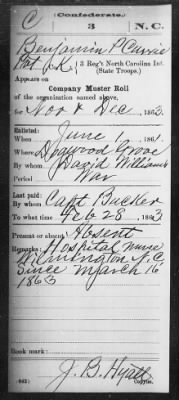 C Confederate.
3 N.C.
Benjamin P Currie
Pvt (K.), 3 Reg't North Carolina Inf.
(State Troops.)
Appears on
Company Muster Roll
of the organization named above,
for Nov & Dec, 1863.
Enlisted:
When June 1, 1861.
Where Dogwood Grove
By whom David Williams
Period War
Last paid:
By whom Capt Bucker
To what time Feb 28, 1863
Present or absent Absent
Remarks: Hospital nurse
Wilmington N.C.
Since March 16
1863
Book mark:
J. B. Hyatt
(642)
Copyist.